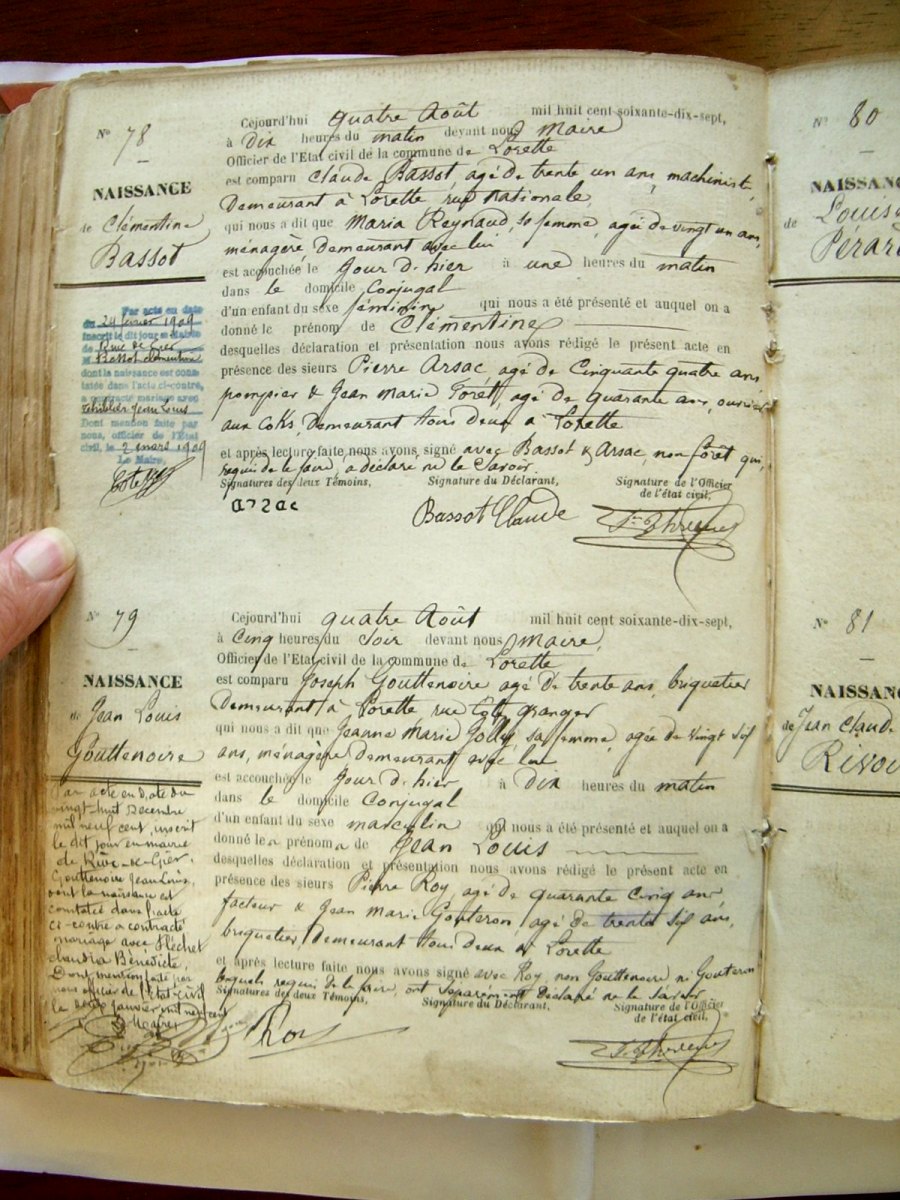 N° 78
NAISSANCE
de Clémentine
Bassot
Cejourd'hui quatre Août mil huit cent soixante-dix-sept,
à dix heures du matin devant nous Maire
Officier de l'Etat civil de la commune de Lorette
est comparu Claude Bassot, agé de trente un ans, machiniste,
Demeurant à Lorette, rue Nationale,
qui nous a dit que Maria Reynaud, sa femme, agée de vingt un ans,
ménagère, Demeurant avec lui
est accouchée le jour d'hier à une heures du matin
dans le domicile Conjugal
d'un enfant du sexe féminin qui nous a été présenté et auquel on a
donné le prénom de Clémentine
desquelles déclaration et présentation nous avons rédigé le présent acte en
présence des sieurs Pierre Arsac, agé de Cinquante quatre ans,
pompier & Jean Marie Forêt, agé de quarante ans, ouvrier
aux Coks, Demeurant tous deux à Lorette
et après lecture faite nous avons signé avec Bassot & Arsac, non Forêt qui,
requi de le faire, a déclaré ne le Savoir.
Signatures des deux Témoins, Signature du Déclarant, Signature de l'Officier
de l'état civil,
arzac Bassot Claude
Par acte en date
du 24 février 1909
inscrit le dit jour à Mairie
de Rive de Gier
M. Bassot Clémentine
dont la naissance est cons-
tatée dans l'acte ci-contre,
a contracté mariage avec
Jean Louis
Dont mention faite par
nous, officier de l'Etat
civil, le 2 mars 1909
Le Maire,
N° 79
NAISSANCE
de Jean Louis
Gouttenoire
Cejourd'hui quatre Août mil huit cent soixante-dix-sept,
à Cinq heures du Soir devant nous Maire,
Officier de l'Etat civil de la commune de Lorette
est comparu Joseph Gouttenoire agé de trente ans, briquetier
Demeurant à Lorette, rue Côte granger
qui nous a dit que Jeanne Marie Jolly, sa femme, agée de vingt Sept
ans, ménagère demeurant avec lui
est accouchée le jour d'hier à Dix heures du matin
dans le domicile Conjugal
d'un enfant du sexe masculin qui nous a été présenté et auquel on a
donné les prénoms de Jean Louis
desquelles déclaration et présentation nous avons rédigé le présent acte en
présence des sieurs Pierre Roy, agé de quarante Cinq ans
facteur & Jean Marie Gouteron, agé de trente Sept ans,
briquetier, demeurant tous deux à Lorette
et après lecture faite nous avons signé avec Roy, non Gouttenoire ni Gouteron
lesquels requi de le faire, ont Séparément Déclaré ne le Savoir
Signatures des deux Témoins, Signature du Déclarant, Signature de l'Officier
de l'état civil,
Roy
Par acte en date du
vingt huit Décembre
mil neuf cent, inscrit
le dit jour en mairie
de Rive-de-Gier,
Gouttenoire Jean Louis,
dont la naissance est
constatée dans l'acte
ci-contre a contracté
mariage avec Fléchet
Claudia Bénédicte,
Dont mention faite par
nous officier de l'Etat civil
le deux janvier mil neuf cent
Le Maire
N° 80
NAISSANC
de Louis
Pérard
N° 81
NAISSANC
de Jean Claude
Rivoi